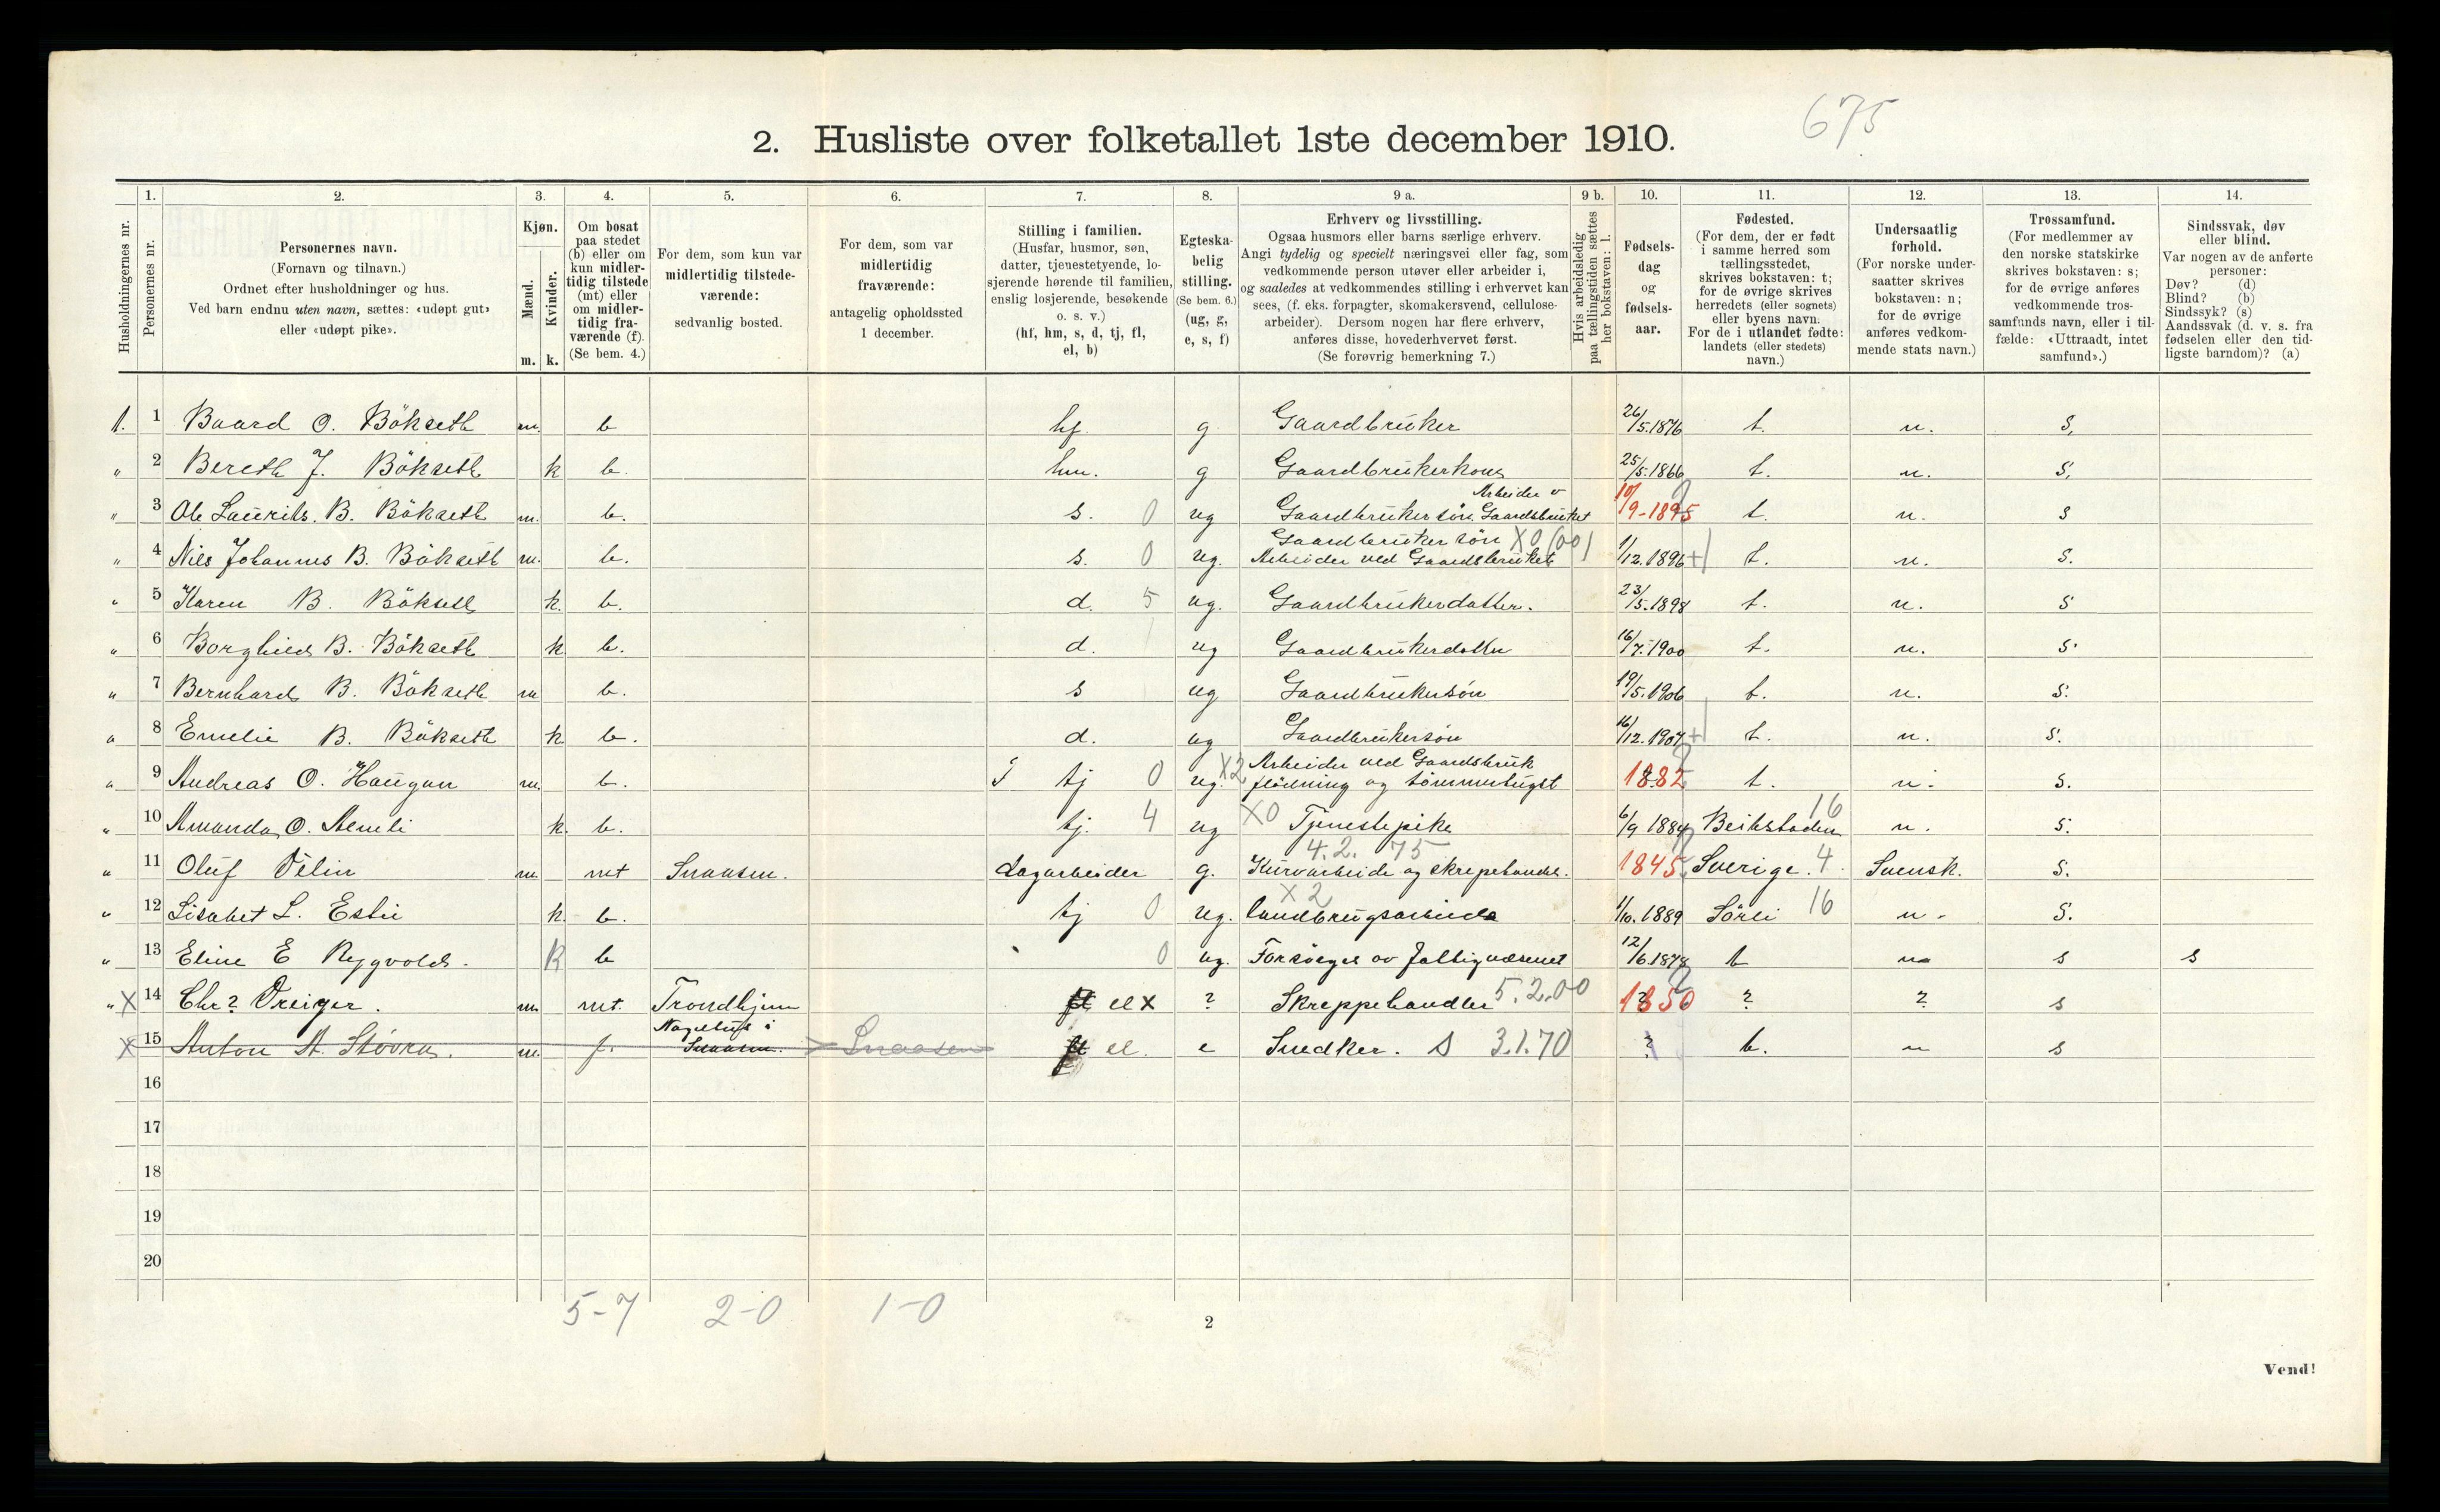 675
2. Husliste over folketallet 1ste december 1910.
1. 2. 3. 4. 5. 6. 7. 8. 9 a. 9 b. 10. 11. 12. 13. 14.
Husholdningernes nr.
Personernes nr.
Personernes navn.
(Fornavn og tilnavn.)
Ordnet efter husholdninger og hus.
Ved barn endnu uten navn, sættes: «udøpt gut»
eller «udøpt pike».
Kjøn.
Mænd.
Kvinder.
m. k.
Om bosat
paa stedet
(b) eller om
kun midler-
tidig tilstede
(mt) eller
om midler-
tidig fra-
værende (f).
(Se bem. 4.)
For dem, som kun var
midlertidig tilstede-
værende:
sedvanlig bosted.
For dem, som var
midlertidig
fraværende:
antagelig opholdssted
1 december.
Stilling i familien.
(Husfar, husmor, søn,
datter, tjenestetyende, lo-
sjerende hørende til familien,
enslig losjerende, besøkende
o. s. v.)
(hf, hm, s, d, tj, fl,
el, b)
Egteska-
belig
stilling.
(Se bem. 6.)
(ug, g,
e, s, f)
Erhverv og livsstilling.
Ogsaa husmors eller barns særlige erhverv.
Angi tydelig og specielt næringsvei eller fag, som
vedkommende person utøver eller arbeider i,
og saaledes at vedkommendes stilling i erhvervet kan
sees, (f. eks. forpagter, skomakersvend, cellulose-
arbeider). Dersom nogen har flere erhverv,
anføres disse, hovederhvervet først.
(Se forøvrig bemerkning 7.)
Hvis arbeidsledig
paa tællingstiden sættes
her bokstaven: l.
Fødsels-
dag
og
fødsels-
aar.
Fødested.
(For dem, der er født
i samme herred som
tællingsstedet,
skrives bokstaven: t;
for de øvrige skrives
herredets (eller sognets)
eller byens navn.
For de i utlandet fødte:
landets (eller stedets)
navn.)
Undersaatlig
forhold.
(For norske under-
saatter skrives
bokstaven: n;
for de øvrige
anføres vedkom-
mende stats navn.)
Trossamfund.
(For medlemmer av
den norske statskirke
skrives bokstaven: s;
for de øvrige anføres
vedkommende tros-
samfunds navn, eller i til-
fælde: «Uttraadt, intet
samfund».)
Sindssvak, døv
eller blind.
Var nogen av de anførte
personer:
Døv? (d)
Blind? (b)
Sindssyk? (s)
Aandssvak (d. v. s. fra
fødselen eller den tid-
ligste barndom)? (a)
1. 1 Baard O. Bökseth m. b hf. g Gaardbruker 26/5.1876 t. n. s.
" 2 Bereth J. Bökseth k b. hm. g Gaardbrukerkone 25/5.1866 t. n. s.
" 3 Ole Laurits. B. Bökseth m. b. s. 0 ug Gaardbruker sön. Arbeider v Gaardsbruket 10/9-1895 t. n. s
" 4 Nils Johannes B. Bökseth m. b. s. 0 ug. Gaardbruker sön X0(00) Arbeider ved Gaardsbruket 1/12.1896 + t. n. s.
" 5 Karen B. Bökseth k. b. d. 5 ug. Gaardbrukerdatter. 23/5.1898 t. n. s
" 6 Borghild B. Bökseth k b. d. ug Gaardbrukerdatter 16/7.1900 t. n. s.
" 7 Bernhard B. Bökseth m b. s ug Gaardbrukersön 19/5.1906 t. n. s.
" 8 Emelie B. Bökseth k b. d. ug Gaardbrukersön 16/12.1907 + t. n. s.
" 9 Andreas O. Haugan m. b. tj 0 ug. X2 Arbeider ved Gaardsbruk flödning og tömmerhugst 1882 t. n. s.
" 10 Amanda O. k. b. tj. 4 ug X0 Tjenestepike 6/9 1884 Beitstaden 16 n. s.
" 11 Oluf Velin m. mt Snaasen. dagarbeider g. 4.2. 75 Kurvarbeide og skrepehandel. 1845 Sverige. 4 Svensk. s.
" 12 Lisabet L. Estie k. b. tj 0 ug. X2 landbrugsarbeide 1/10.1889 Sörli 16 n. s.
" 13 Eline E k b 0 ug. Forsörges av fattigvæsenet 12/6.1878 t n s s
" X 14 Chr? Dreiyer. m. mt. Trondhjem fl el x ? Skreppehandler 5.2.00 1850 ? ? s
X 15 Anton A. Stövra. m. f. i Snaasen. Snaasen fl el. e Snedker. s 3.1.70 ? t. n s
16
17
18
19
20
5-7 2-0 1-0
2
Vend!